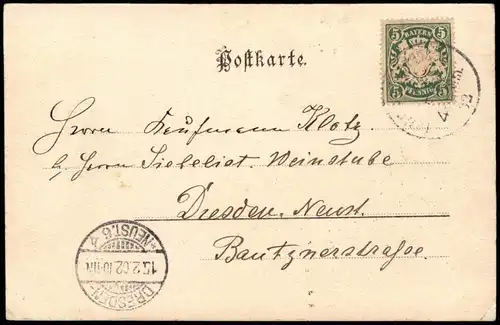 5 BAYERN 5
5 PFENNIG 5
Postkarte.
Herrn Kaufmann Klotz
b/ Herrn Weinstube
Dresden-Neust.
Bautznerstraße.
NEUST.6
15.2.02.10-11
DRESDEN-